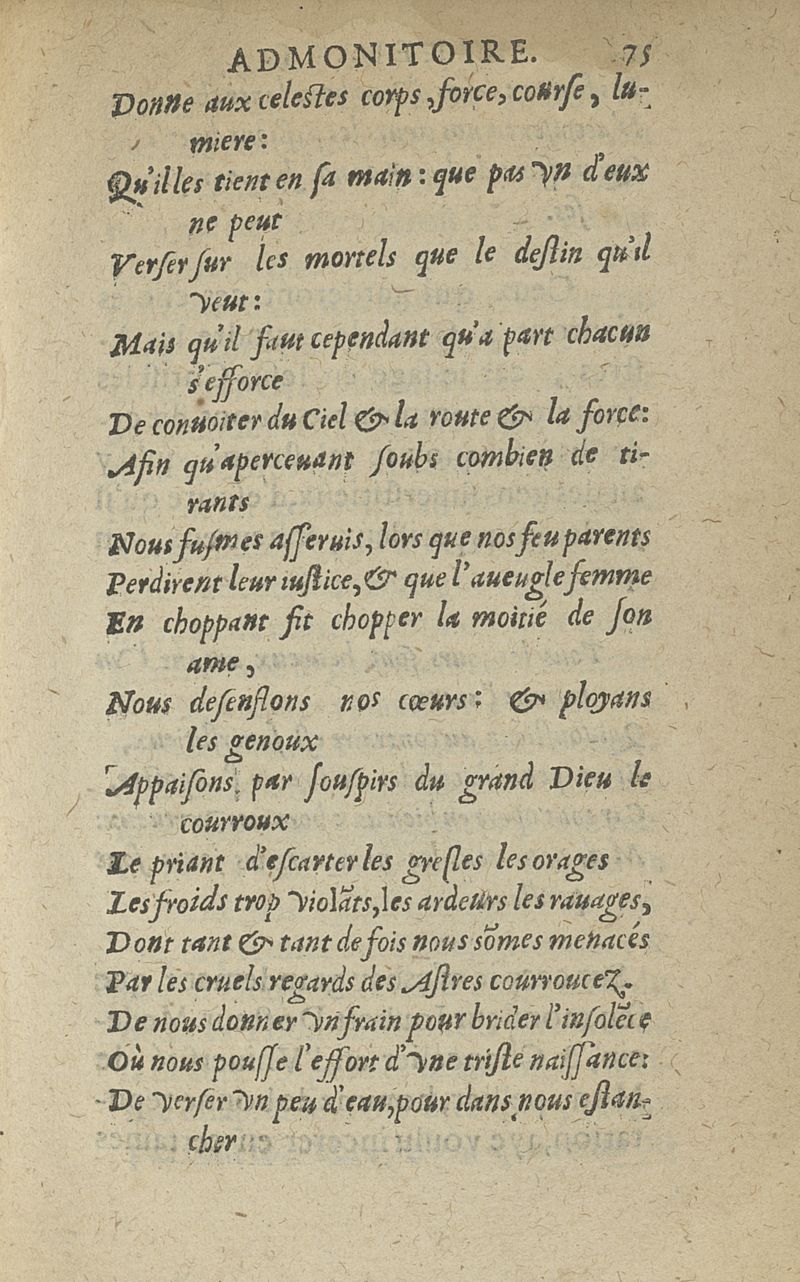 ADMONITOIRE. 75
Donne aux celeſtes corps, force, courſe, lu-
miere:
Qu'illes tient en ſa main: que pas vn d'eux
ne peut
Verſer ſur les mortels que le deſtin qu'il
veut:
Mais qu'il faut cependant qu'a part chacun
s'efforce
De conuoiter du Ciel & la route & la force:
Afin qu'aperceuant ſoubs combien de ti-
rants
Nous fuſmes aſſeruis, lors que nos feu parents
Perdirent leur iuſtice, & que l'aueugle femme
En choppant fit chopper la moitié de ſon
ame,
Nous deſenflons nos cœurs: & ployans
les genoux
Appaiſons par ſouſpirs du grand Dieu le
courroux
Le priant d'eſcarter les greſles les orages
Les froids trop violãts, les ardeurs les rauages,
Dont tant & tant de fois nous sõmes menacés
Par les cruels regards des Aſtres courroucez.
De nous donner vn frain pour brider l'inſolẽce
Où nous pouſſe l'effort d'vne triſte naiſſance:
De verſer vn peu d'eau, pour dans nous eſtan-
cher